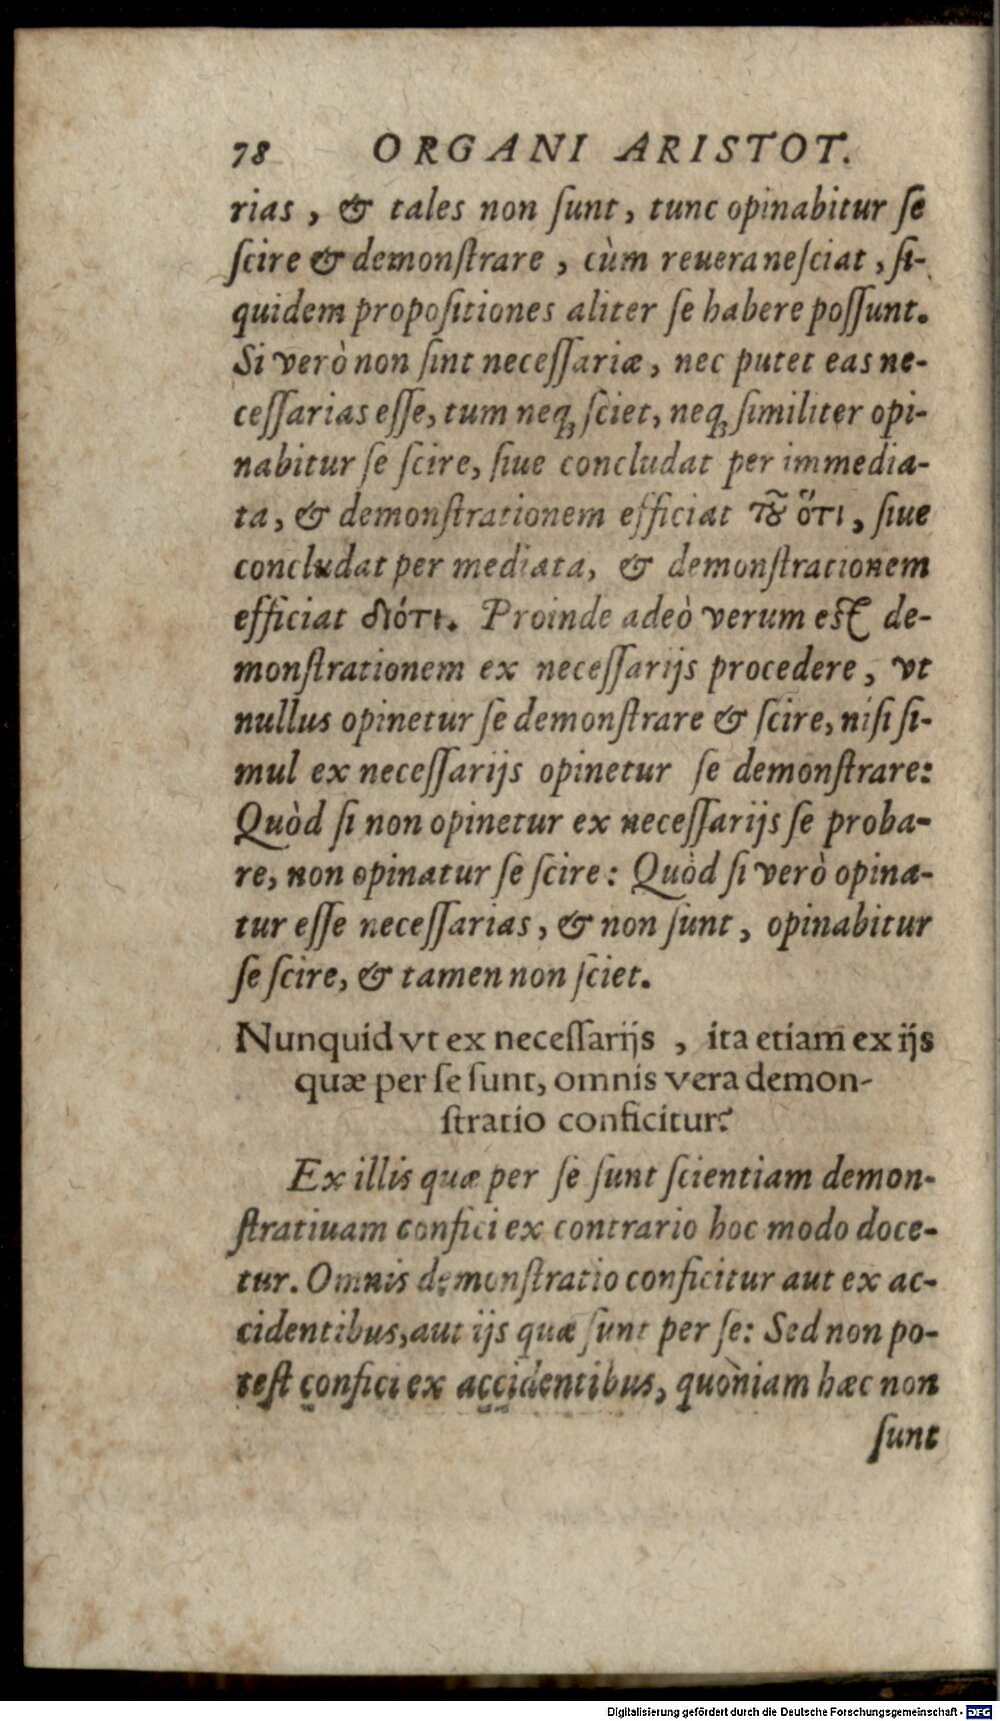 78 ORGANI ARISTOT.
rias, & tales non ſunt, tunc opinabitur ſe
ſcire & demonſtrare, cùm reuera neſciat, ſi-
quidem propoſitiones aliter ſe habere poſſunt.
Si verò non ſint neceſſariæ, nec putet eas ne-
ceſſarias eſſe, tum neqꝫ ſciet, neqꝫ ſimiliter opi-
nabitur ſe ſcire, ſiue concludat per immedia-
ta, & demonſtrationem efficiat τȣ͂ ὅτι, ſiue
concludat per mediata, & demonſtrationem
efficiat διότι. Proinde adeò verum eſt de-
monſtrationem ex neceſſarijs procedere, vt
nullus opinetur ſe demonſtrare & ſcire, niſi ſi-
mul ex neceſſarijs opinetur ſe demonſtrare:
Quòd ſi non opinetur ex neceſſarijs ſe proba-
re, non opinatur ſe ſcire: Quòd ſi verò opina-
tur eſſe neceſſarias, & non ſunt, opinabitur
ſe ſcire, & tamen non ſciet.
Nunquid vt ex neceſſarijs, ita etiam ex ijs
quæ per ſe ſunt, omnis vera demon-
ſtratio conficitur?
Ex illis quæ per ſe ſunt ſcientiam demon-
ſtratiuam confici ex contrario hoc modo doce-
tur. Omnis demonſtratio conficitur aut ex ac-
cidentibus, aut ijs quæ ſunt per ſe: Sed non po-
teſt confici ex accidentibus, quòniam hæc non
ſunt
Digitalisierung gefördert durch die Deutsche Forschungsgemeinschaft - DFG